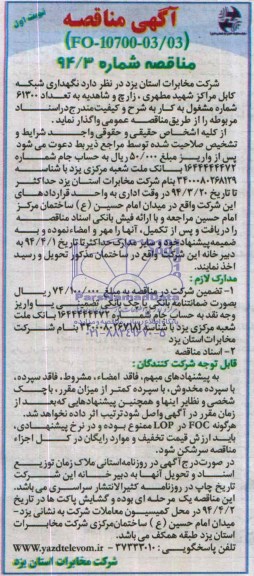 نوبت اول
آگهی مناقصه
(FO-10700-03/03)
مناقصه شماره ۹۴/۳
شرکت مخابرات استان یزد در نظر دارد نگهداری شبکه
کابل مراکز شهید مطهری ، زارچ و شاهدیه به تعداد ۶۱۳۰۰
شماره مشغول به کار به شرح و کیفیت مندرج دراسناد
مربوطه را از طریق مناقصه عمومی واگذار نماید.
از کلیه اشخاص حقیقی و حقوقی واجد شرایط و
تشخیص صلاحیت شده توسط مراجع ذیربط دعوت می شود
پس از واریز مبلغ ۵۰/۰۰۰ ریال به حساب جام شماره
۱۶۴۴۴۴۴۴۷۲ بانک ملت شعبه مرکزی یزد با شناسه
۳۴۰۰۰۸۰۲۶۸۱۲۹ بنام شرکت مخابرات استان یزد حداکثر
تا تاریخ ۹۴/۳/۲۰ در وقت اداری به واحد قراردادهای
این شرکت واقع در میدان امام حسین (ع) ساختمان مرکز
امام حسین مراجعه و با ارائه فیش بانکی اسناد مناقصه
را دریافت و پس از تکمیل، آنها را مهر و امضاء نموده و به
ضمیمه پیشنهاد خود و سایر مدارک حداکثر تا تاریخ ۹۴/۴/۱ به
دبیرخانه این شرکت واقع در ساختمان مذکور تحویل و رسید
اخذ نمایند.
مدارک لازم :
۱- تضمین شرکت در مناقصه به مبلغ ۷۴/۱۰۰/۰۰۰ ریال
بصورت ضمانتنامه بانکی یا چک بانکی تضمینی یا واریز
وجه نقد به حساب جام شماره ۱۶۴۴۴۴۴۴۷۲ بانک ملت
شعبه مرکزی یزد با شناسه بنام شرکت
مخابرات استان یزد
۲- اسناد مناقصه
قابل توجه شرکت کنندگان :
به پیشنهادهای مبهم، فاقد امضاء، مشروط، فاقد سپرده،
با سپرده مخدوش، با سپرده کمتر از میزان مقرر، با چک
شخصی و نظایر اینها و همچنین پیشنهادهایی که بعد از
زمان مقرر در آگهی واصل شود ترتیب اثر داده نخواهد شد.
هرگونه FOC در LOP ممنوع بوده و در نرخ پیشنهادی،
باید ارزش قیمت تخفیف و موارد رایگان در کل اجزاء
مناقصه سرشکن شود.
در صورت درج آگهی در روزنامه استانی ملاک زمان توزیع
اسناد و تحویل آنها به دبیرخانه این شرکت
تاریخ چاپ در روزنامه کثیرالانتشار سراسری می باشد.
این مناقصه یک مرحله ای بوده و گشایش پاکت ها در تاریخ
۹۴/۴/۲ در محل کمیسیون معاملات شرکت به نشانی یزد-
میدان امام حسین (ع) ساختمان مرکزی شرکت مخابرات
استان یزد طبقه همکف می باشد.
تلفن پاسخگویی : ۳۷۲۳۳۰۱۰ - www.yazdtelecom.ir
شرکت مخابرات استان یزد